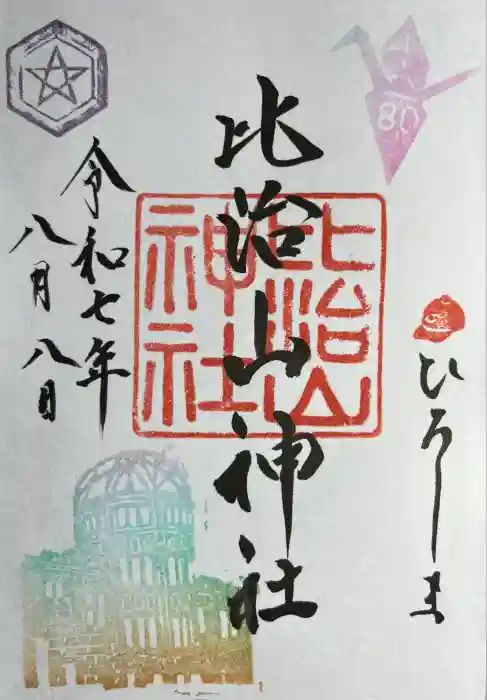 ひろしま
比治山神社
比治山
神社
令和七年
八月八日
80